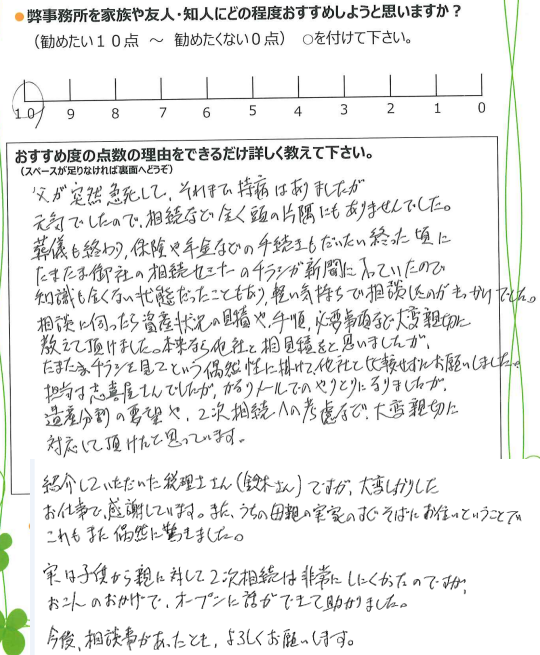 ●弊事務所を家族や友人・知人にどの程度おすすめしようと思いますか？
（勧めたい１０点　～　勧めたくない０点）　○を付けて下さい。
10 9 8 7 6 5 4 3 2 1 0
おすすめ度の点数の理由をできるだけ詳しく教えて下さい。
（スペースが足りなければ裏面へどうぞ）
父が突然急死して、それまで持病はありましたが
元気でしたので、相続など全く頭の片隅にもありませんでした。
葬儀も終わり、保険や年金などの手続きもだいたい終った頃に
たまたま御社の相続セミナーのチラシが新聞に入っていたので
知識も全くない状態だったこともあり、軽い気持ちで相談したのがきっかけでした。
相談に伺ったら資産状況の見積や、手順、必要事項など大変親切に
教えて頂けました。本来なら他社と相見積をと思いましたが、
たまたまチラシを見てという偶然性に掛けて他社と比較せずにお願いしました。
担当は志喜屋さんでしたが、かなりメールでのやりとりになりましたが、
遺産分割の要望や、2次相続への考慮など、大変親切に
対応して頂けたと思っています。
紹介していただいた税理士さん（鈴木さん）ですが、大変しっかりした
お仕事で、感謝しています。また、うちの母親の実家のすぐそばにお住いということで
これもまた偶然に驚きました。
実は子供から親に対して2次相続は非常にしにくかったのですが、
おこんのおかげで、オープンに話ができて助かりました。
今後、相談事があったとき、よろしくお願いします。